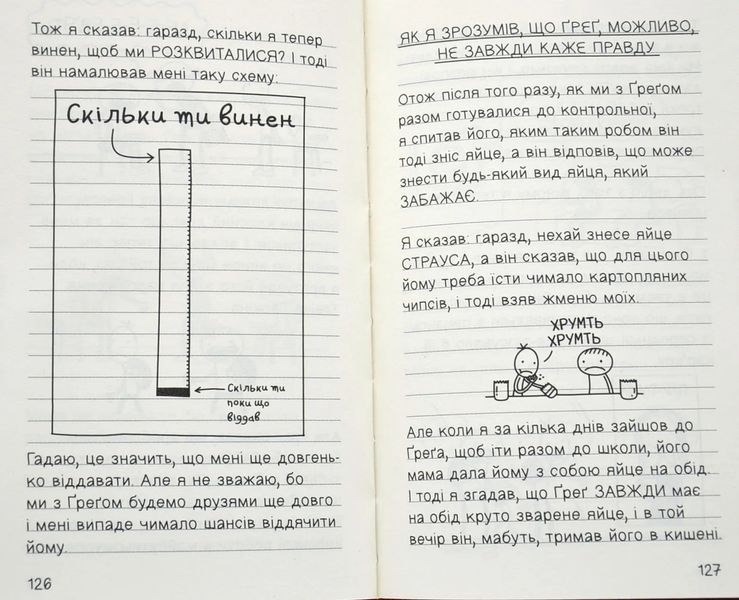 Тож я сказав: гаразд, скільки я тепер
винен, щоб ми РОЗКВИТАЛИСЯ? І тоді
він намалював мені таку схему:
Скільки ти винен
Скільки ти
поки що
віддав
Гадаю, це значить, що мені ще довгень-
ко віддавати. Але я не зважаю, бо
ми з Ґреґом будемо друзями ще довго
і мені випаде чимало шансів віддячити
йому.
126
ЯК Я ЗРОЗУМІВ, ЩО ҐРЕҐ, МОЖЛИВО,
НЕ ЗАВЖДИ КАЖЕ ПРАВДУ
Отож після того разу, як ми з Ґреґом
разом готувалися до контрольної,
я спитав його, яким таким робом він
тоді зніс яйце, а він відповів, що може
знести будь-який вид яйця, який
ЗАБАЖАЄ.
Я сказав: гаразд, нехай знесе яйце
СТРАУСА, а він сказав, що для цього
йому треба їсти чимало картопляних
чипсів, і тоді взяв жменю моїх.
ХРУМТЬ
ХРУМТЬ
Але коли я за кілька днів зайшов до
Ґреґа, щоб іти разом до школи, його
мама дала йому з собою яйце на обід.
І тоді я згадав, що Ґреґ ЗАВЖДИ має
на обід круто зварене яйце, і в той
вечір він, мабуть, тримав його в кишені.
127